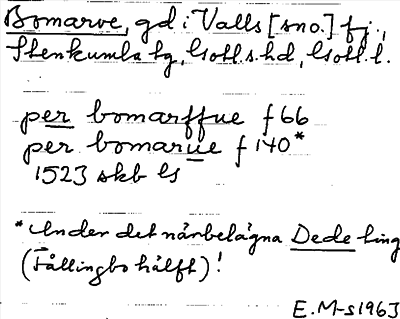 Bomarve, gd i Valls [sno.] fj.,
Stenkumla tg, Gotl.s.hd, Gotl.l.
per bomarffue f 66
per bomarue f 140*
1523 skb Gs
* Under det närbelägna Dede ting
(Fållingbo hälft)!
E.M-s 1963